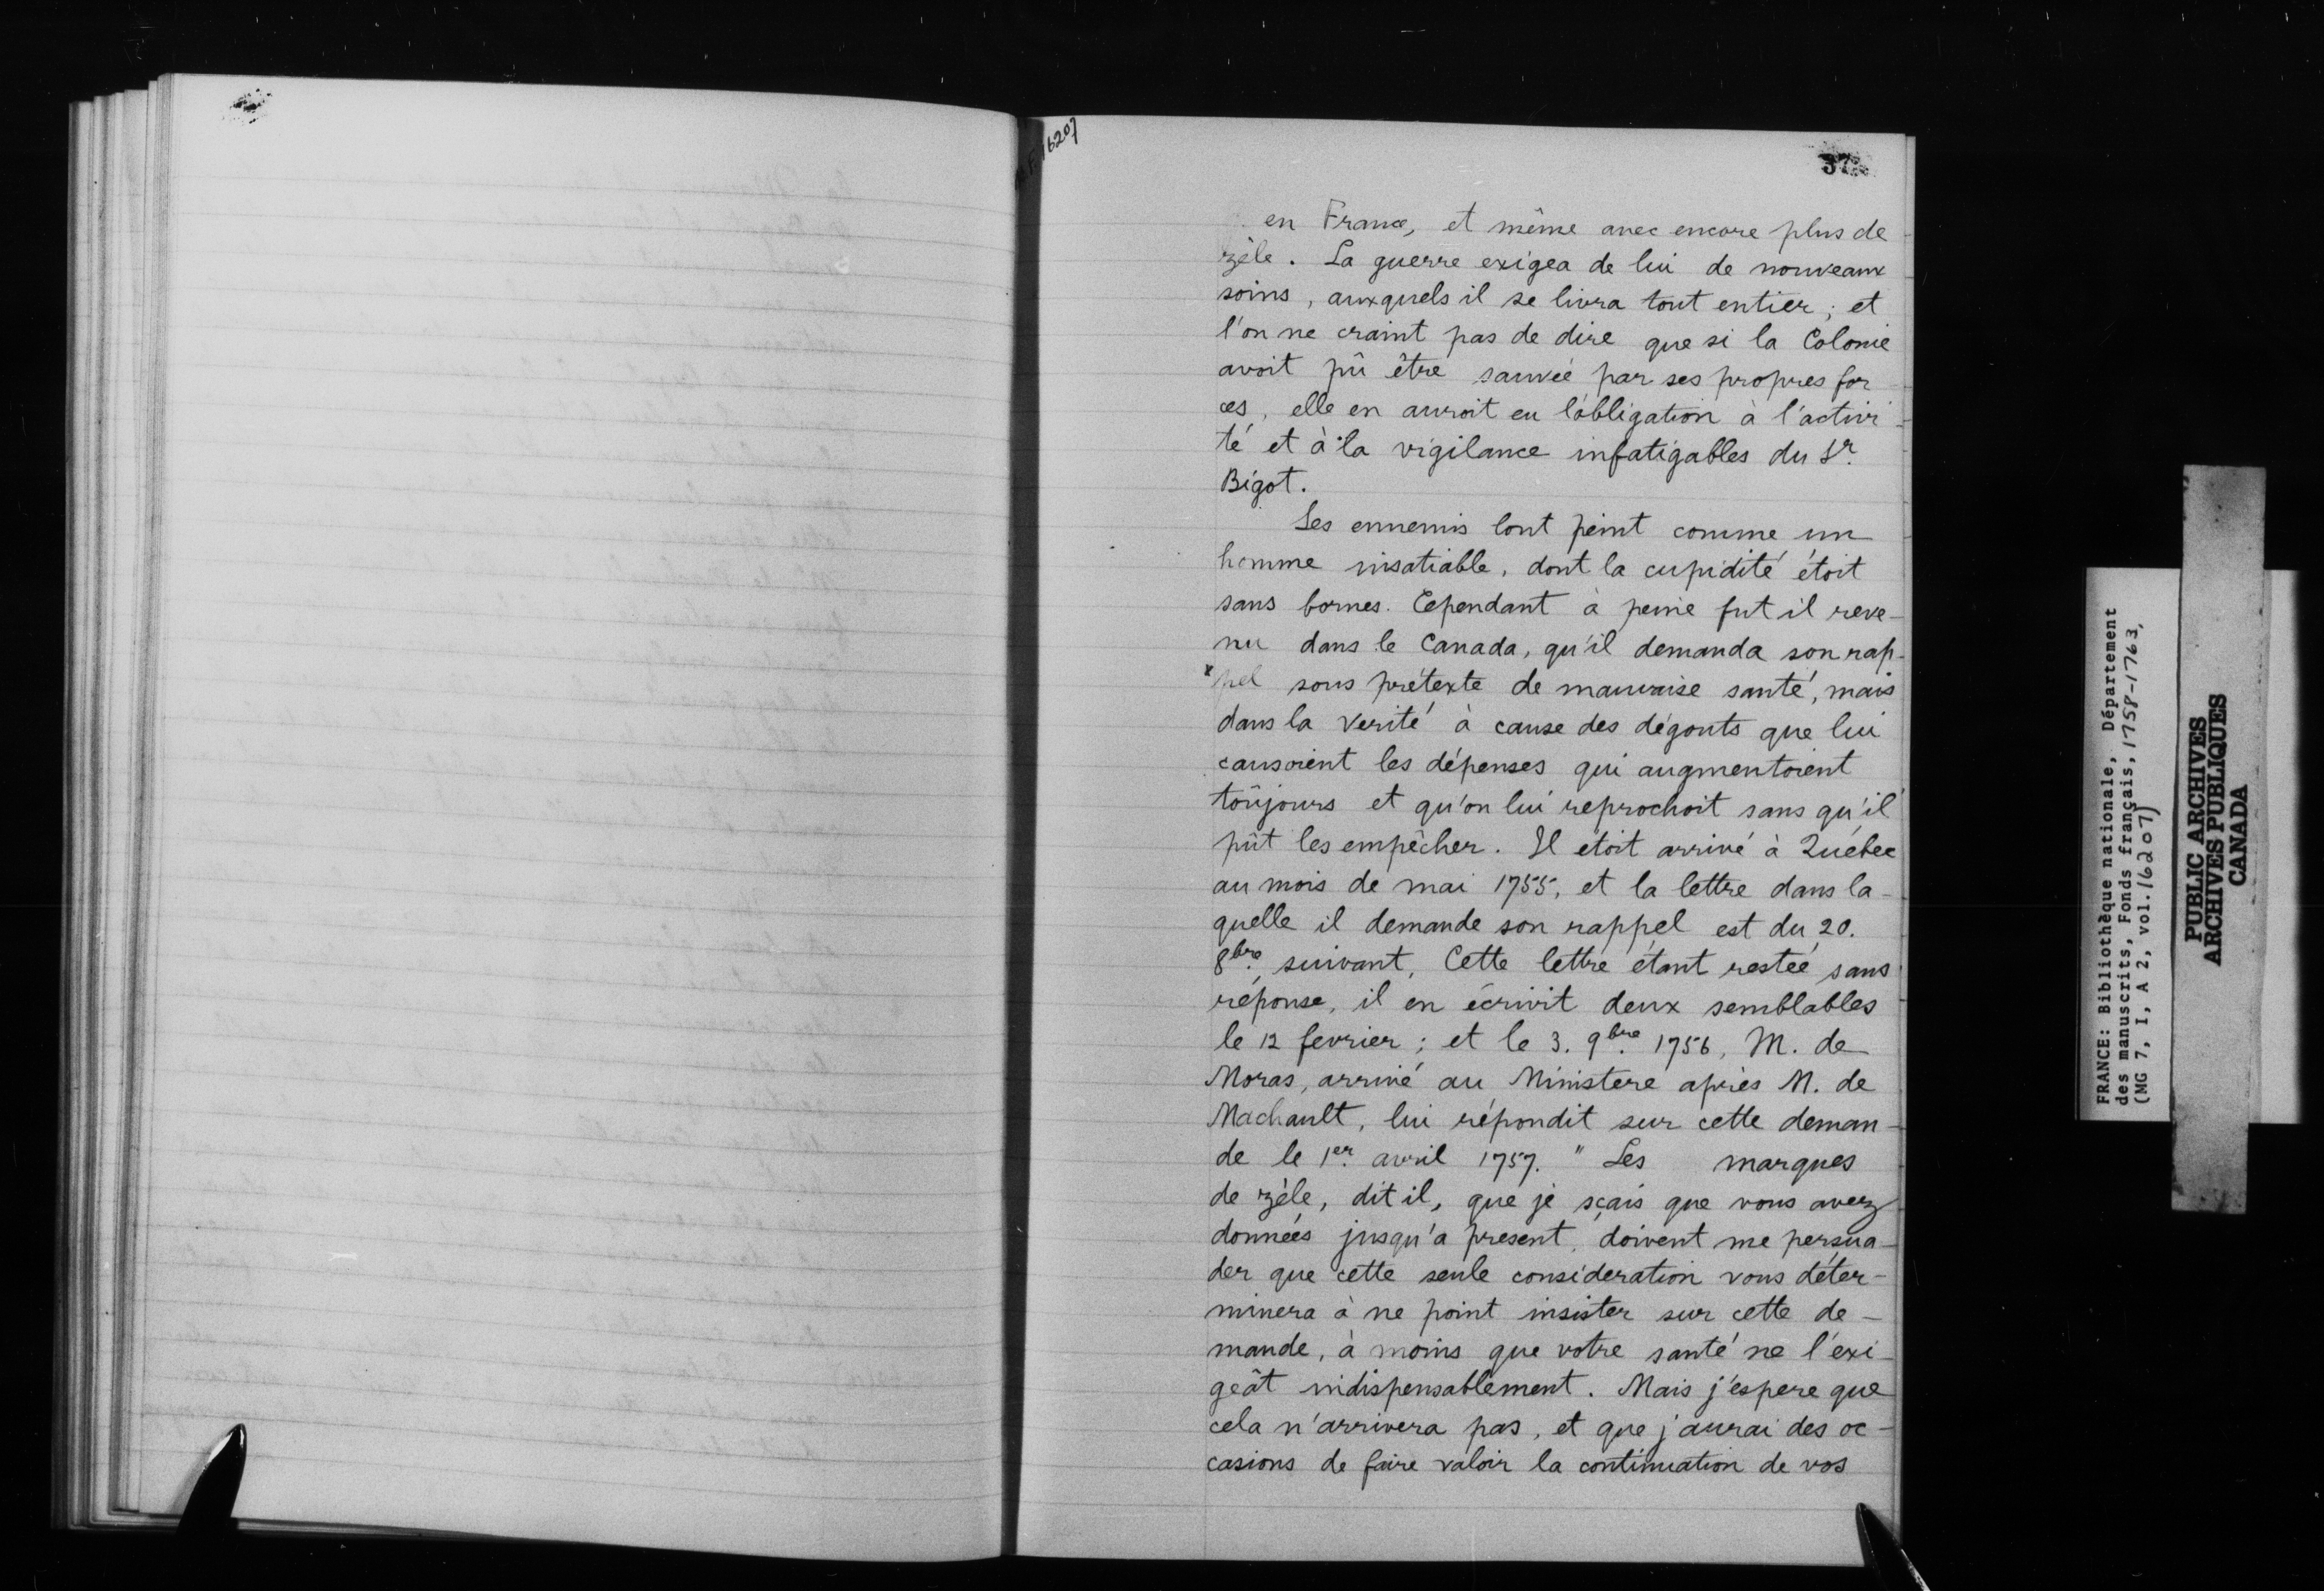 16207
37
en France, et même avec encore plus de
zèle. La guerre exigea de lui de nouveaux
soins, auxquels il se livra tout entier; et
l'on ne craint pas de dire que si la Colonie
avoit pû être sauvée par ses propres for
ces, elle en auroit eu l'obligation à l'activi-
té et à la vigilance infatigables du Sr.
Bigot.
Ses ennemis l'ont peint comme un
homme insatiable, dont la cupidité étoit
sans bornes. Cependant à peine fut il reve-
nu dans le Canada, qu'il demanda son rap-
x pel sous prétexte de mauvaise santé, mais
dans la verité à cause des dégouts que lui
causoient les dépenses qui augmentoient
toûjours et qu'on lui reprochoit sans qu'il
pût les empêcher. Il étoit arrivé à Québec
au mois de mai 1755, et la lettre dans la-
quelle il demande son rappel est du 20.
8bre. suivant, Cette lettre étant restée sans
réponse, il en écrivit deux semblables
le 12 fevrier; et le 3. 9bre. 1756, M. de
Moras, arrivé au Ministere après M. de
Machault, lui répondit sur cette deman-
de le 1er. avril 1757. " Les marques
de zèle, dit il, que je sçais que vous avez
données jusqu'a present, doivent me persua-
der que cette seule consideration vous déter-
minera à ne point insister sur cette de-
mande, à moins que votre santé ne l'exi-
geât indispensablement. Mais j'espere que
cela n'arrivera pas, et que j'aurai des oc-
casions de faire valoir la continuation de vos
FRANCE: Bibliothèque nationale, Département
des manuscrits, Fonds français, 1758-1763,
(MG 7, I, A 2, vol. 16207)
PUBLIC ARCHIVES
ARCHIVES PUBLIQUES
CANADA